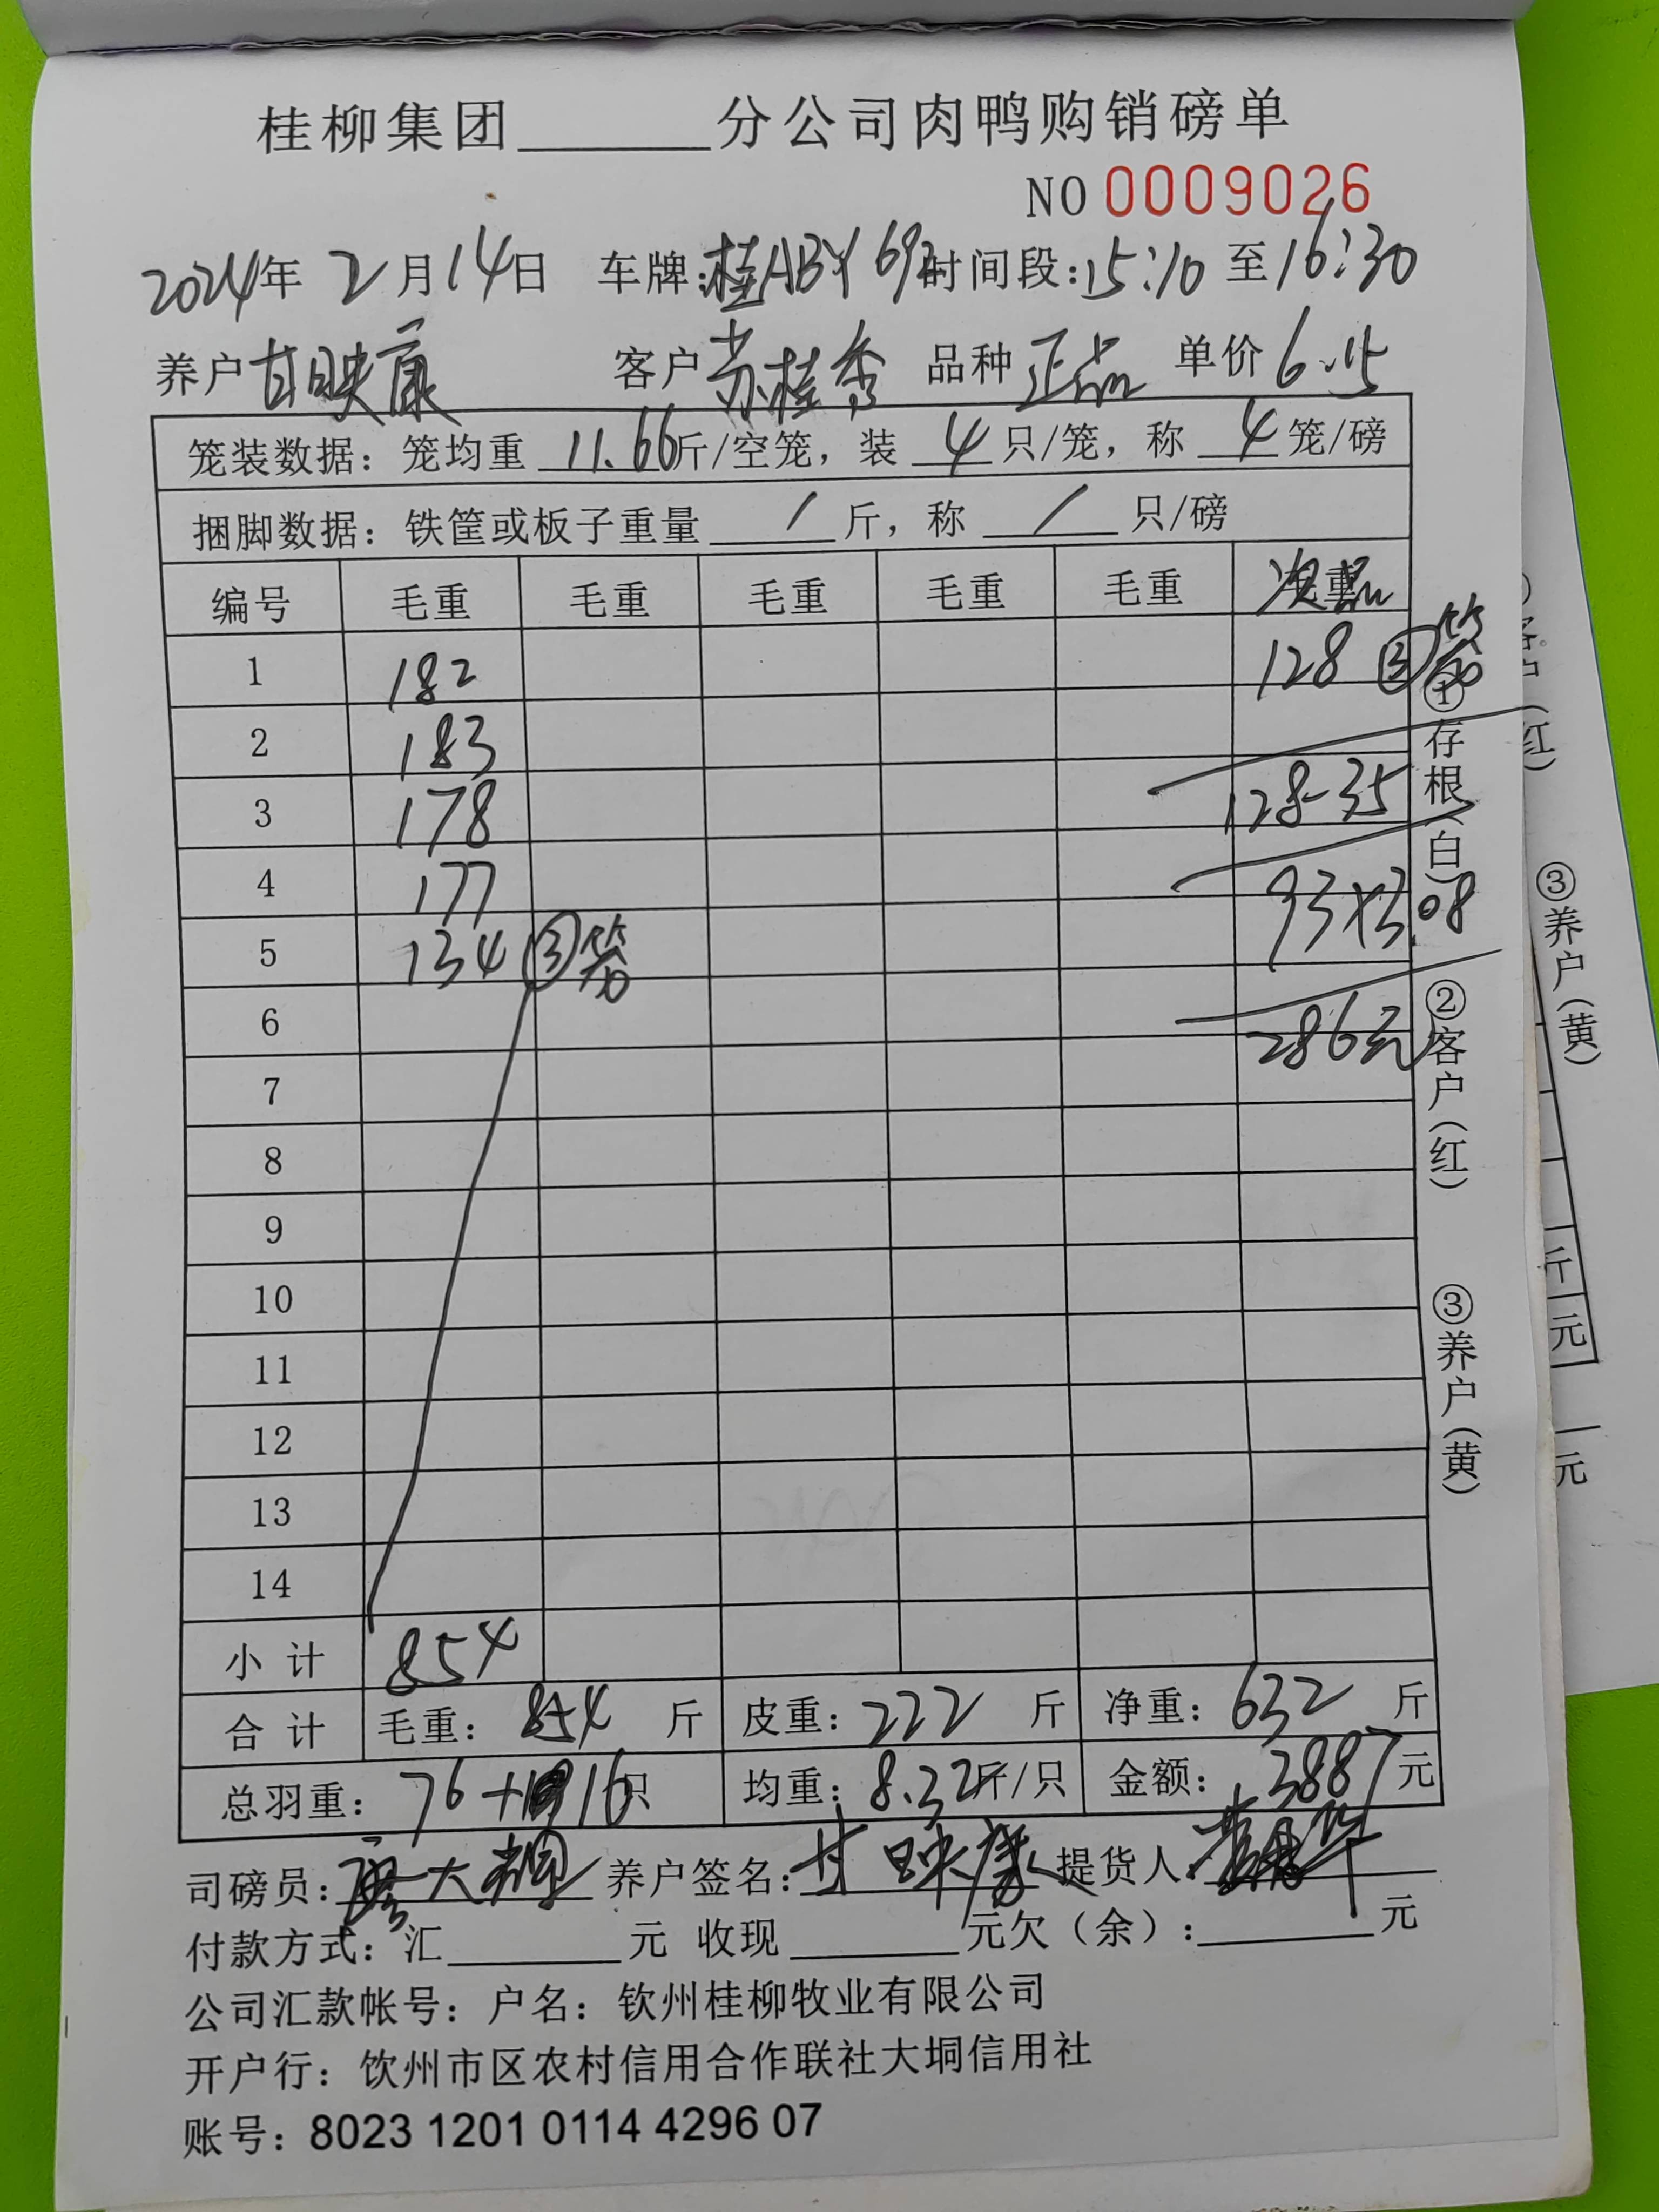 桂柳集团______分公司肉鸭购销磅单
NO 0009026
2024年 2月14日 车牌:桂ABY69 时间段:15:10 至16:30
养户 甘映康 客户 苏桂秀 品种 正品 单价 6.15
笼装数据：笼均重 11.66斤/空笼，装 4 只/笼，称 4 笼/磅
捆脚数据：铁筐或板子重量 / 斤，称 / 只/磅
编号 毛重 毛重 毛重 毛重 毛重 次品
1 182 128 ③笼
2 183
3 178 128-35
4 177 93×3.08
5 134 ③笼
6 286元
7
8
9
10
11
12
13
14
小 计 854
合 计 毛重： 854 斤 皮重：222 斤 净重：632 斤
总羽重： 76+16只 均重：8.32斤/只 金额：3887元
司磅员： 养户签名：甘映康 提货人：
付款方式：汇______元 收现______元欠（余）:______元
公司汇款帐号：户名：钦州桂柳牧业有限公司
开户行：钦州市区农村信用合作联社大垌信用社
账号：8023 1201 0114 4296 07
①存根（白）
②客户（红）
③养户（黄）
③养户（黄）
红）
斤
元
元